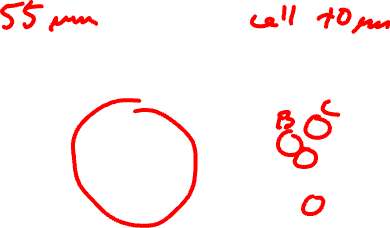 55 μm
cell 10 μm
B
C